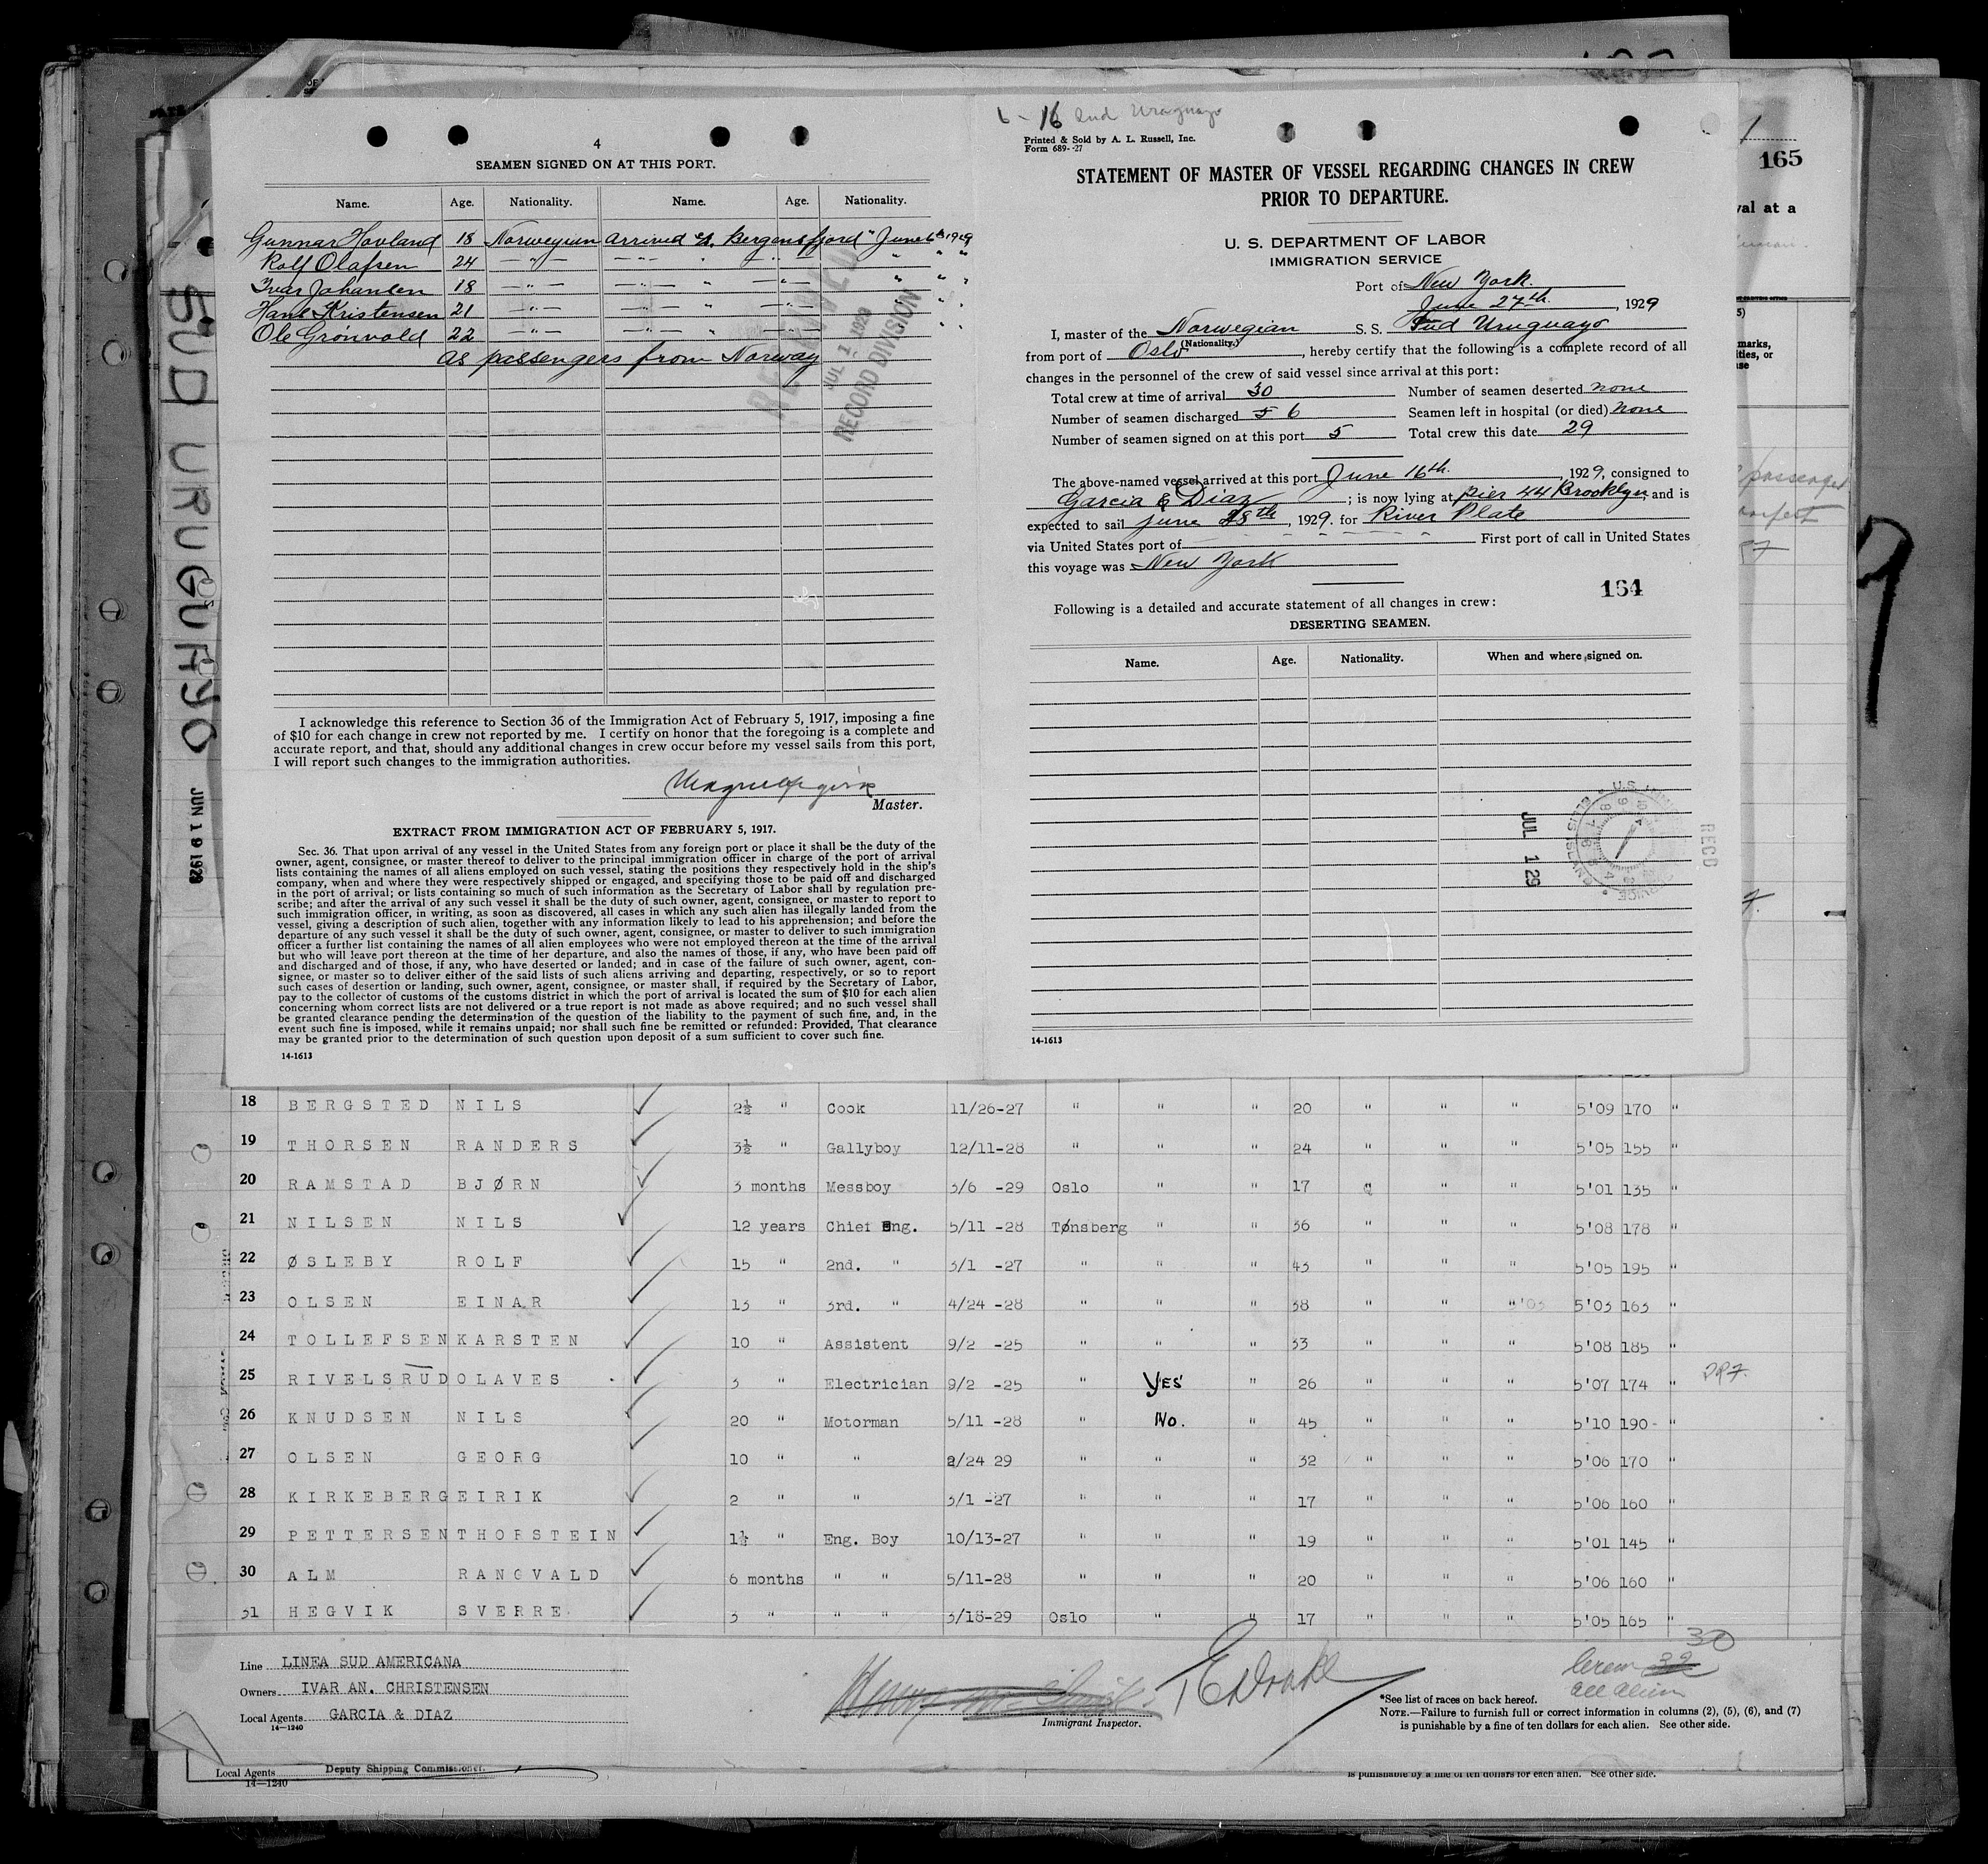 SUD URUGUAYO
JUN 19 1929
4
SEAMEN SIGNED ON AT THIS PORT.
Name. Age. Nationality. Name. Age. Nationality.
Gunnar Hovland 18 Norwegian arrived S/S. Bergensfjord" June 6th 1929
Rolf Olafsen 24 —"— —"— " —"— " " "
Ivar Johansen 18 —"— —"— " —"— " " "
Hans Kristensen 21 —"— —"— " —"— " " "
Ole Grönvold 22 —"— —"— " —"— " "
as passengers from Norway
REVIEWED
JUL 1 1929
RECORD DIVISION
I acknowledge this reference to Section 36 of the Immigration Act of February 5, 1917, imposing a fine
of $10 for each change in crew not reported by me. I certify on honor that the foregoing is a complete and
accurate report, and that, should any additional changes in crew occur before my vessel sails from this port,
I will report such changes to the immigration authorities.
Master.
EXTRACT FROM IMMIGRATION ACT OF FEBRUARY 5, 1917.
Sec. 36. That upon arrival of any vessel in the United States from any foreign port or place it shall be the duty of the
owner, agent, consignee, or master thereof to deliver to the principal immigration officer in charge of the port of arrival
lists containing the names of all aliens employed on such vessel, stating the positions they respectively hold in the ship's
company, when and where they were respectively shipped or engaged, and specifying those to be paid off and discharged
in the port of arrival; or lists containing so much of such information as the Secretary of Labor shall by regulation pre-
scribe; and after the arrival of any such vessel it shall be the duty of such owner, agent, consignee, or master to report to
such immigration officer, in writing, as soon as discovered, all cases in which any such alien has illegally landed from the
vessel, giving a description of such alien, together with any information likely to lead to his apprehension; and before the
departure of any such vessel it shall be the duty of such owner, agent, consignee, or master to deliver to such immigration
officer a further list containing the names of all alien employees who were not employed thereon at the time of the arrival
but who will leave port thereon at the time of her departure, and also the names of those, if any, who have been paid off
and discharged and of those, if any, who have deserted or landed; and in case of the failure of such owner, agent, con-
signee, or master so to deliver either of the said lists of such aliens arriving and departing, respectively, or so to report
such cases of desertion or landing, such owner, agent, consignee, or master shall, if required by the Secretary of Labor,
pay to the collector of customs of the customs district in which the port of arrival is located the sum of $10 for each alien
concerning whom correct lists are not delivered or a true report is not made as above required; and no such vessel shall
be granted clearance pending the determination of the question of the liability to the payment of such fine, and, in the
event such fine is imposed, while it remains unpaid; nor shall such fine be remitted or refunded: Provided, That clearance
may be granted prior to the determination of such question upon deposit of a sum sufficient to cover such fine.
14-1613
6-16 Sud Uruguayo
Printed & Sold by A. L. Russell, Inc.
Form 689--27
STATEMENT OF MASTER OF VESSEL REGARDING CHANGES IN CREW
PRIOR TO DEPARTURE.
U. S. DEPARTMENT OF LABOR
IMMIGRATION SERVICE
Port of New York.
June 27th, 1929
I, master of the Norwegian S. S. Sud Uruguayo
(Nationality.)
from port of Oslo, hereby certify that the following is a complete record of all
changes in the personnel of the crew of said vessel since arrival at this port:
Total crew at time of arrival 30 Number of seamen deserted none
Number of seamen discharged 5 6 Seamen left in hospital (or died) none
Number of seamen signed on at this port 5 Total crew this date 29
The above-named vessel arrived at this port June 16th, 1929, consigned to
Garcia & Diaz; is now lying at pier 44 Brooklyn, and is
expected to sail june 28th, 1929. for River Plate
via United States port of First port of call in United States
this voyage was New York
164
Following is a detailed and accurate statement of all changes in crew:
DESERTING SEAMEN.
Name. Age. Nationality. When and where signed on.
JUL 1 29
RECD
14-1613
165
val at a
marks,
ities, or
passenger
18 BERGSTED NILS 2½ " Cook 11/26-27 " " " 20 " " " 5'09 170 "
19 THORSEN RANDERS 3½ " Gallyboy 12/11-28 " " " 24 " " " 5'05 155 "
20 RAMSTAD BJØRN 3 months Messboy 3/6 -29 Oslo " " 17 " " " 5'01 135 "
21 NILSEN NILS 12 years Chief Eng. 5/11 -28 Tønsberg " " 36 " " " 5'08 178 "
22 ØSLEBY ROLF 15 " 2nd. " 3/1 -27 " " " 43 " " " 5'05 195 "
23 OLSEN EINAR 13 " 3rd. " 4/24 -28 " " " 38 " " " 5'03 163 "
24 TOLLEFSEN KARSTEN 10 " Assistent 9/2 -25 " " " 33 " " " 5'08 185 "
25 RIVELSRUD OLAVES 3 " Electrician 9/2 -25 " YES " 26 " " " 5'07 174 " 297.
26 KNUDSEN NILS 20 " Motorman 5/11 -28 " No. " 45 " " " 5'10 190 "
27 OLSEN GEORG 10 " " 2/24 29 " " " 32 " " " 5'06 170 "
28 KIRKEBERG EIRIK 2 " " 3/1 -27 " " " 17 " " " 5'06 160 "
29 PETTERSEN THORSTEIN 1½ " Eng. Boy 10/13-27 " " " 19 " " " 5'01 145 "
30 ALM RANGVALD 6 months " " 5/11-28 " " " 20 " " " 5'06 160 "
31 HEGVIK SVERRE 3 " " " 3/18-29 Oslo " " 17 " " " 5'05 165 "
Line LINEA SUD AMERICANA
Owners IVAR AN. CHRISTENSEN
Local Agents GARCIA & DIAZ
14-1240
Immigrant Inspector.
30
Crew 32
all alien
*See list of races on back hereof.
NOTE.—Failure to furnish full or correct information in columns (2), (5), (6), and (7)
is punishable by a fine of ten dollars for each alien. See other side.
Local Agents Deputy Shipping Commissioner.
14—1240
is punishable by a fine of ten dollars for each alien. See other side.